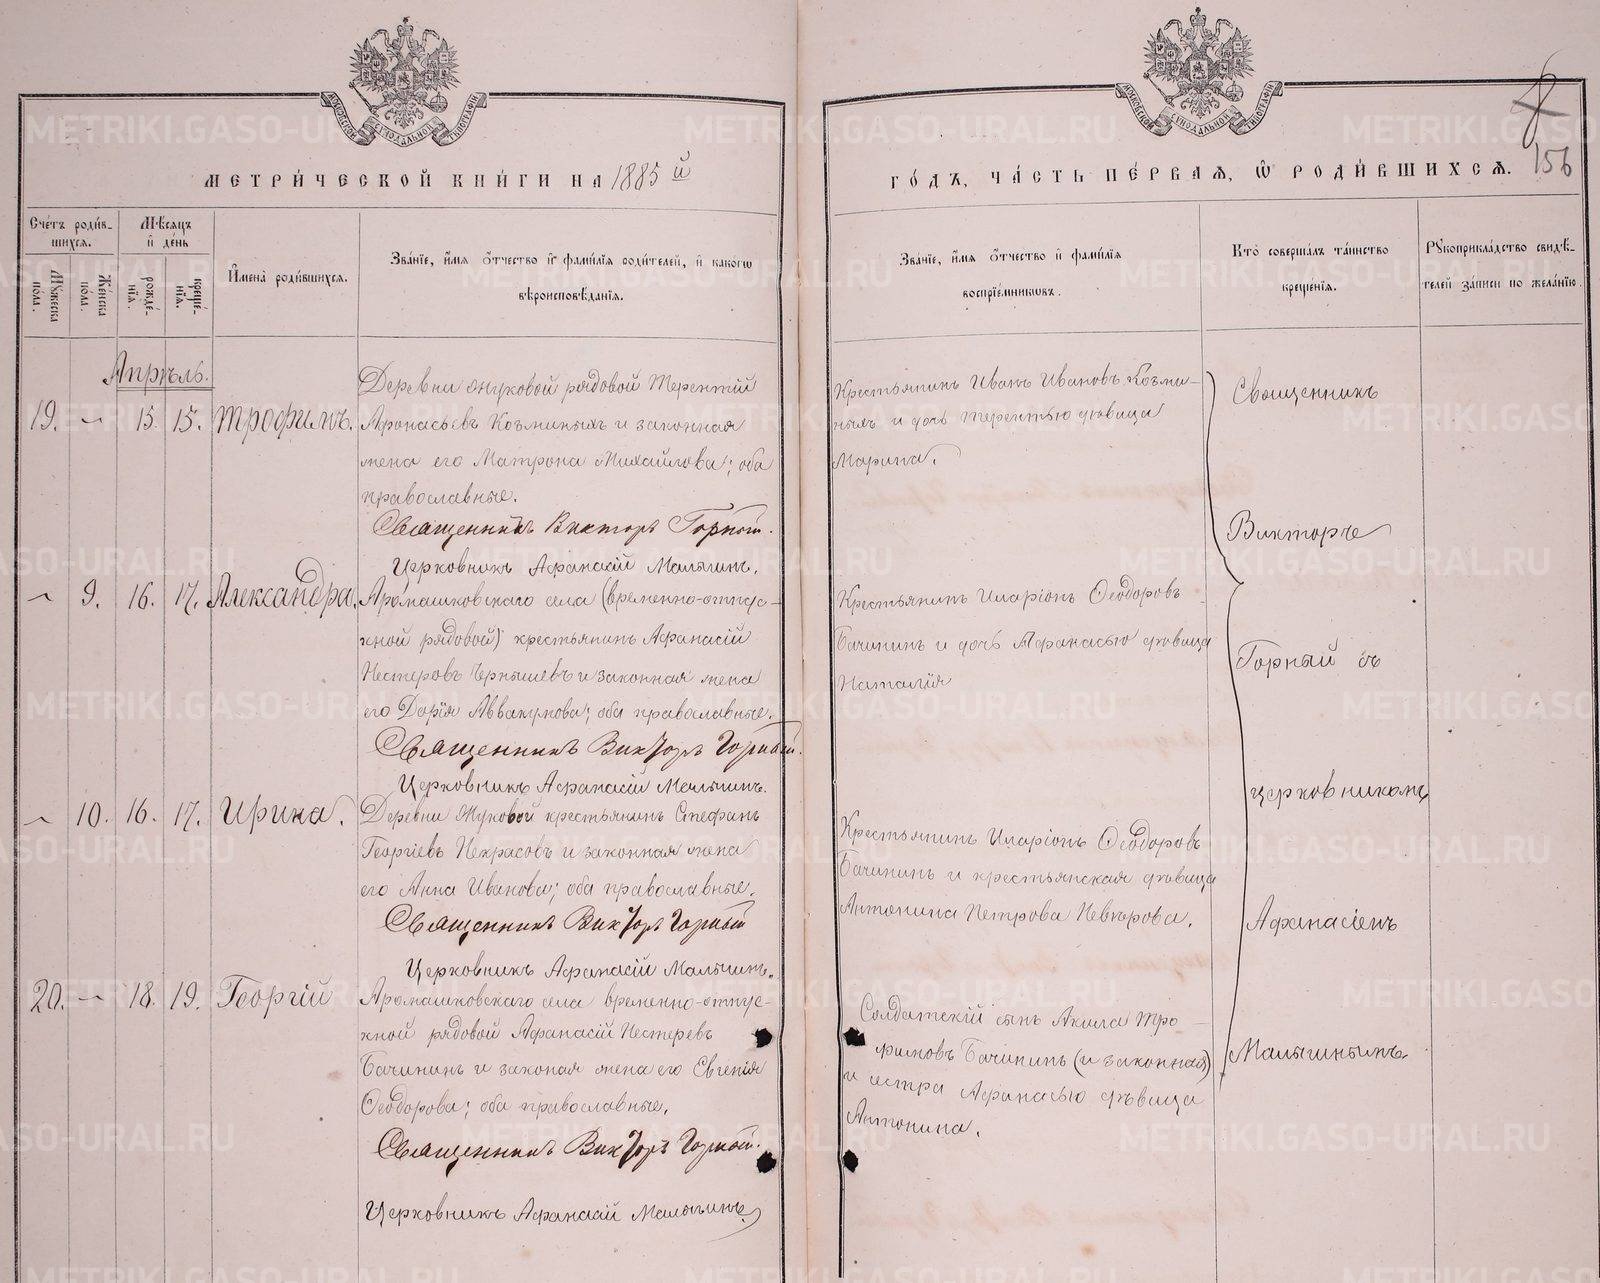 МЕТРИ́ЧЕСКОЙ КНИ́ГИ НА 1885й
ГО́ДЪ, ЧА́СТЬ ПЕ́РВАѦ, Ѡ РОДИ́ВШИХСѦ.
156
Сче́тъ роди́в-
шихсѧ.
Мѣ́сѧцъ
и де́нь
Мꙋ́жеска по́ла.
Же́нска по́ла.
рожде́-
нїѧ.
креще́-
нїѧ.
Имена̀ роди́вшихсѧ.
Зва́нїе, и́мѧ о́тчество и фами́лїѧ роди́телей, и како́гѡ
вѣроисповѣ́данїѧ.
Зва́нїе, и́мѧ о́тчество и фами́лїѧ
воспрїе́мникѡвъ.
Кто̀ соверша́лъ та́инство
креще́нїѧ.
Рꙋкоприкла́дство свидѣ́-
телей за́писи по жела́нїю.
Апрѣль.
19. — 15. 15. Трофимъ.
Деревни Жуковой рядовой Терентій
Афонасьевъ Козминыхъ и законная
жена его Матрона Михайлова; оба
православные.
Священникъ Викторъ Горный.
Церковникъ Афанасій Малыгинъ.
Крестьянинъ Иванъ Ивановъ Козми-
ныхъ и дочь Терентью дѣвица
Марина.
— 9. 16. 17. Александра.
Аромашковскаго села (временно-отпус-
кной рядовой) крестьянинъ Афанасій
Нестеровъ Чернышевъ и законная жена
его Дарія Аввакумова; оба православные.
Священникъ Викторъ Горный.
Церковникъ Афанасій Малыгинъ.
Крестьянинъ Иларіонъ Ѳеодоровъ
Бачининъ и дочь Афанасью дѣвица
Наталія
— 10. 16. 17. Ирина.
Деревни Жуковой крестьянинъ Стефанъ
Георгіевъ Некрасовъ и законная жена
его Анна Иванова; оба православные.
Священникъ Викторъ Горный
Церковникъ Афанасій Малыгинъ.
Крестьянинъ Иларіонъ Ѳеодоровъ
Бачининъ и крестьянская дѣвица
Антонина Петрова Невѣрова.
20. — 18. 19. Георгій
Аромашковскаго села временно-отпус-
кной рядовой Афанасій Нестеревъ
Бачининъ и законая жена его Евгенія
Ѳеодорова; оба православные.
Священникъ Викторъ Горный.
Церковникъ Афанасій Малыгинъ
Солдатскій сынъ Акила Тро-
фимовъ Бачининъ (и законная)
и сестра Афанасью дѣвица
Антонина.
Священникъ
Викторъ
Горный съ
церковникомъ
Афанасіемъ
Малыгинымъ.